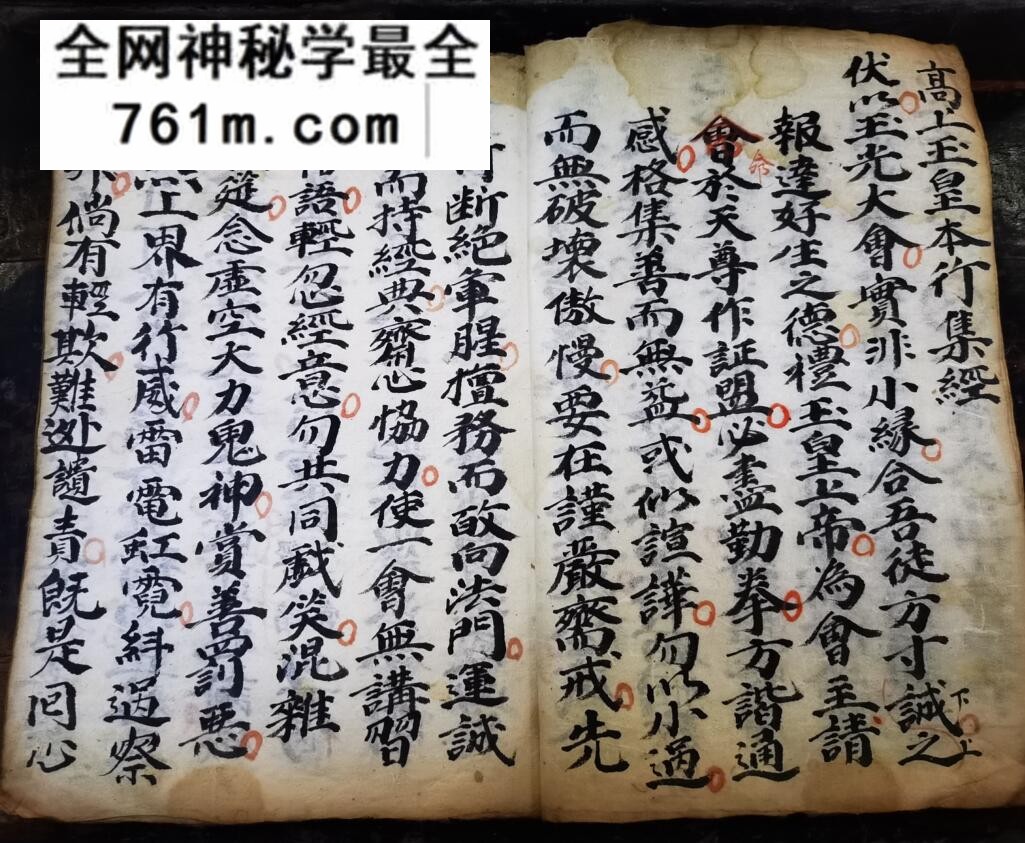 全网神秘学最全
761m.com
高上玉皇本行集經
伏以玉光大會實非小緣合吾徒方寸誠之
下上
報達好生之德禮玉皇上帝為會主請
會於天尊作証盟必盡勤拳方諧通
命
感格集善而無益或似諠譁勿以小過
而無破壞傲慢要在謹嚴齋戒先
斷絕軍腥擅務而敢向法門運誠
而持經典齋心恊力使一會無講習
語輕忽經意勿共同戯笑混雜
筵念虛空大力鬼神賞善罰惡
上界有行威雷電虹霓糾過察
倘有輕欺難逊讀責既是同心